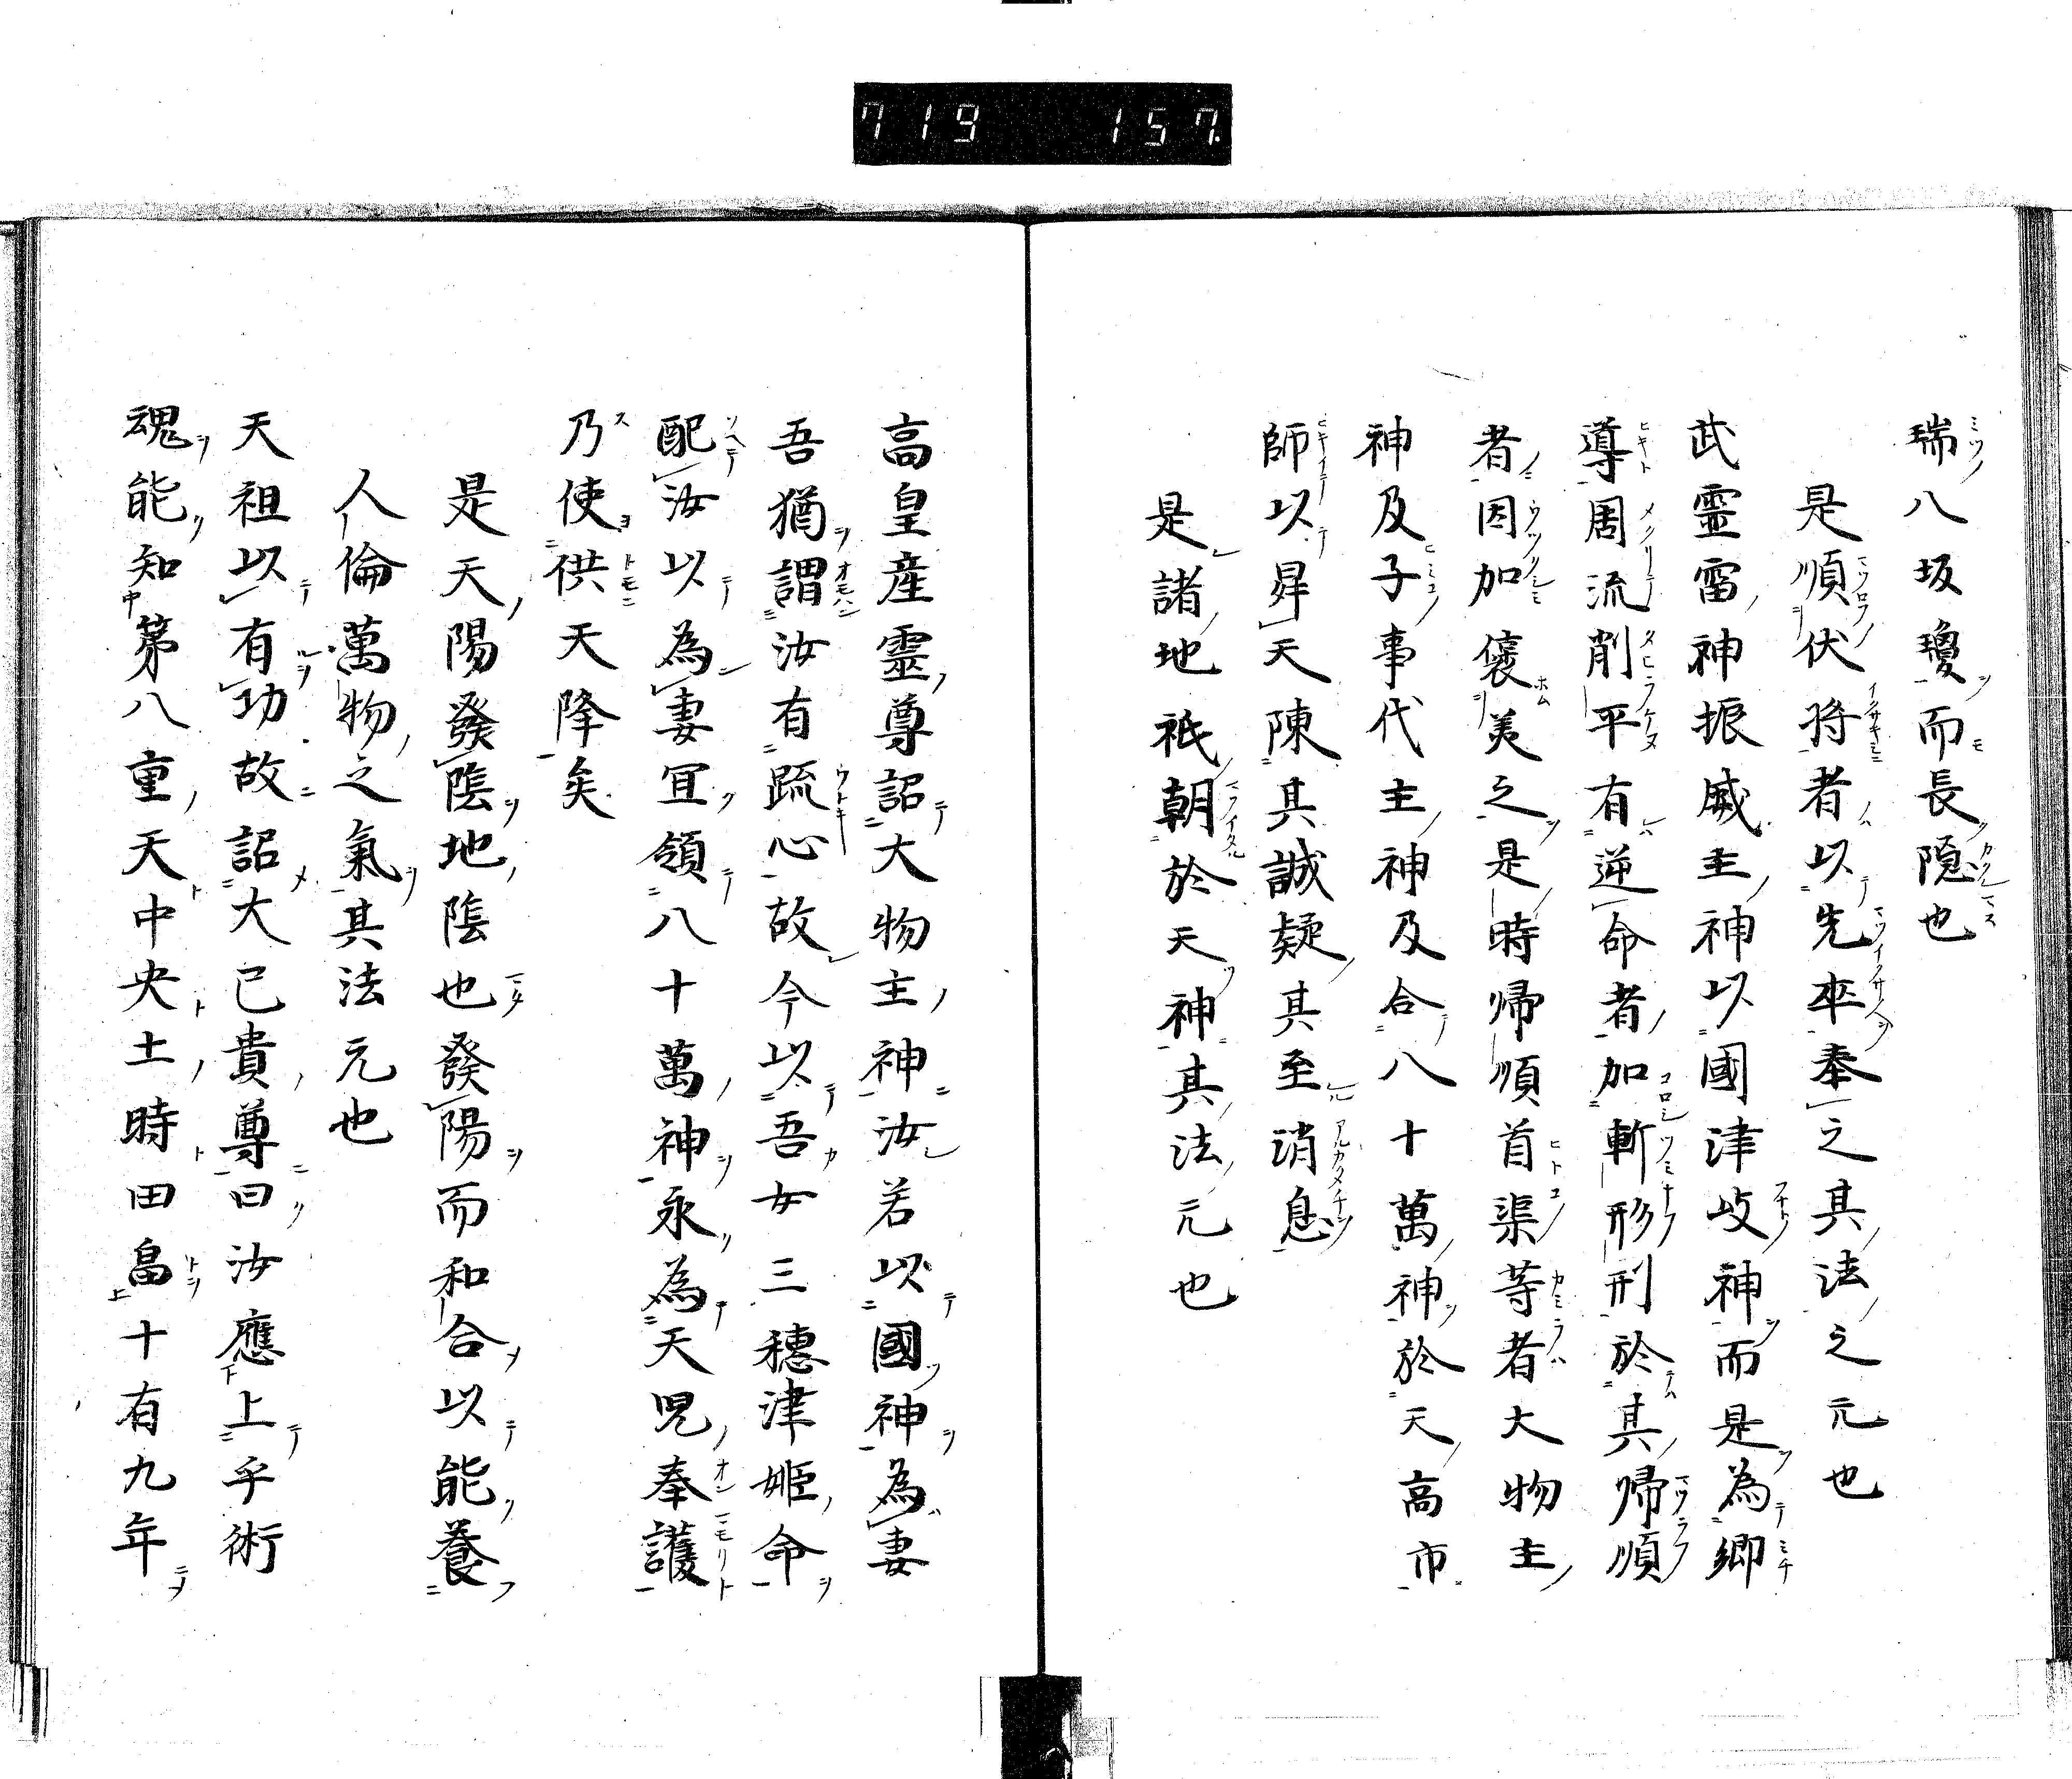 719 157
瑞八坂瓊而長隠也
是順伏将者以先卒奉之其法之元也
武霊雷神振威主神以國津岐神而是為郷
導周流削平有逆命者加斬形刑於其帰順
者因加褒美之是時帰順首渠等者大物主
神及子事代主神及合八十萬神於天高市
師以昇天陳其誠疑其至消息
是諸地祇朝於天神其法元也
高皇産霊尊詔大物主神汝若以國神為妻
吾猶謂汝有疏心故今以吾女三穗津姫命
配汝以為妻宜領八十萬神永為天児奉護
乃使供天降矣
是天陽發陰地陰也發陽而和合以能養
人倫萬物之氣其法元也
天祖以有功故詔大已貴尊曰汝應上乎術
魂能知第八重天中央土時田畠十有九年